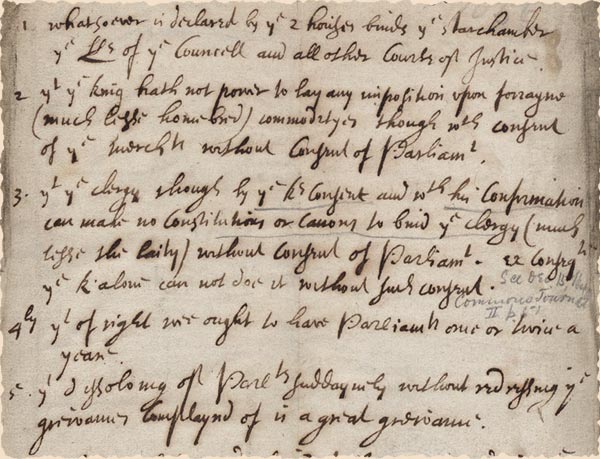 1 whatsoever is declared by yᵉ 2 houses binds yᵉ starchamber
yᵉ LLs of yᵉ Councell and all other Courts of Justice.
2 yᵗ yᵉ king hath not power to lay any imposition upon forrayne
(much lesse homebred) commodityes though wᵗʰ consent
of yᵉ merchᵗˢ without Consent of Parliamᵗ.
3. yᵗ yᵉ clergy though by yᵉ Ks Consent and wᵗʰ his Confirmation
can make no Constitutions or Canons to bind yᵉ clergy (much
lesse the laity) without consent of Parliamᵗ. ex
yᵉ K alone can not doe it without such consent.
See Dec. 15.
Commons Journal
II p.
4ˡʸ yᵗ of right wee ought to have Parliamᵗˢ one or twice a
yeare.
5. yᵗ dissolving of Parlᵗˢ suddaynely without redressing yᵉ
grievances complaynd of is a great grievance.